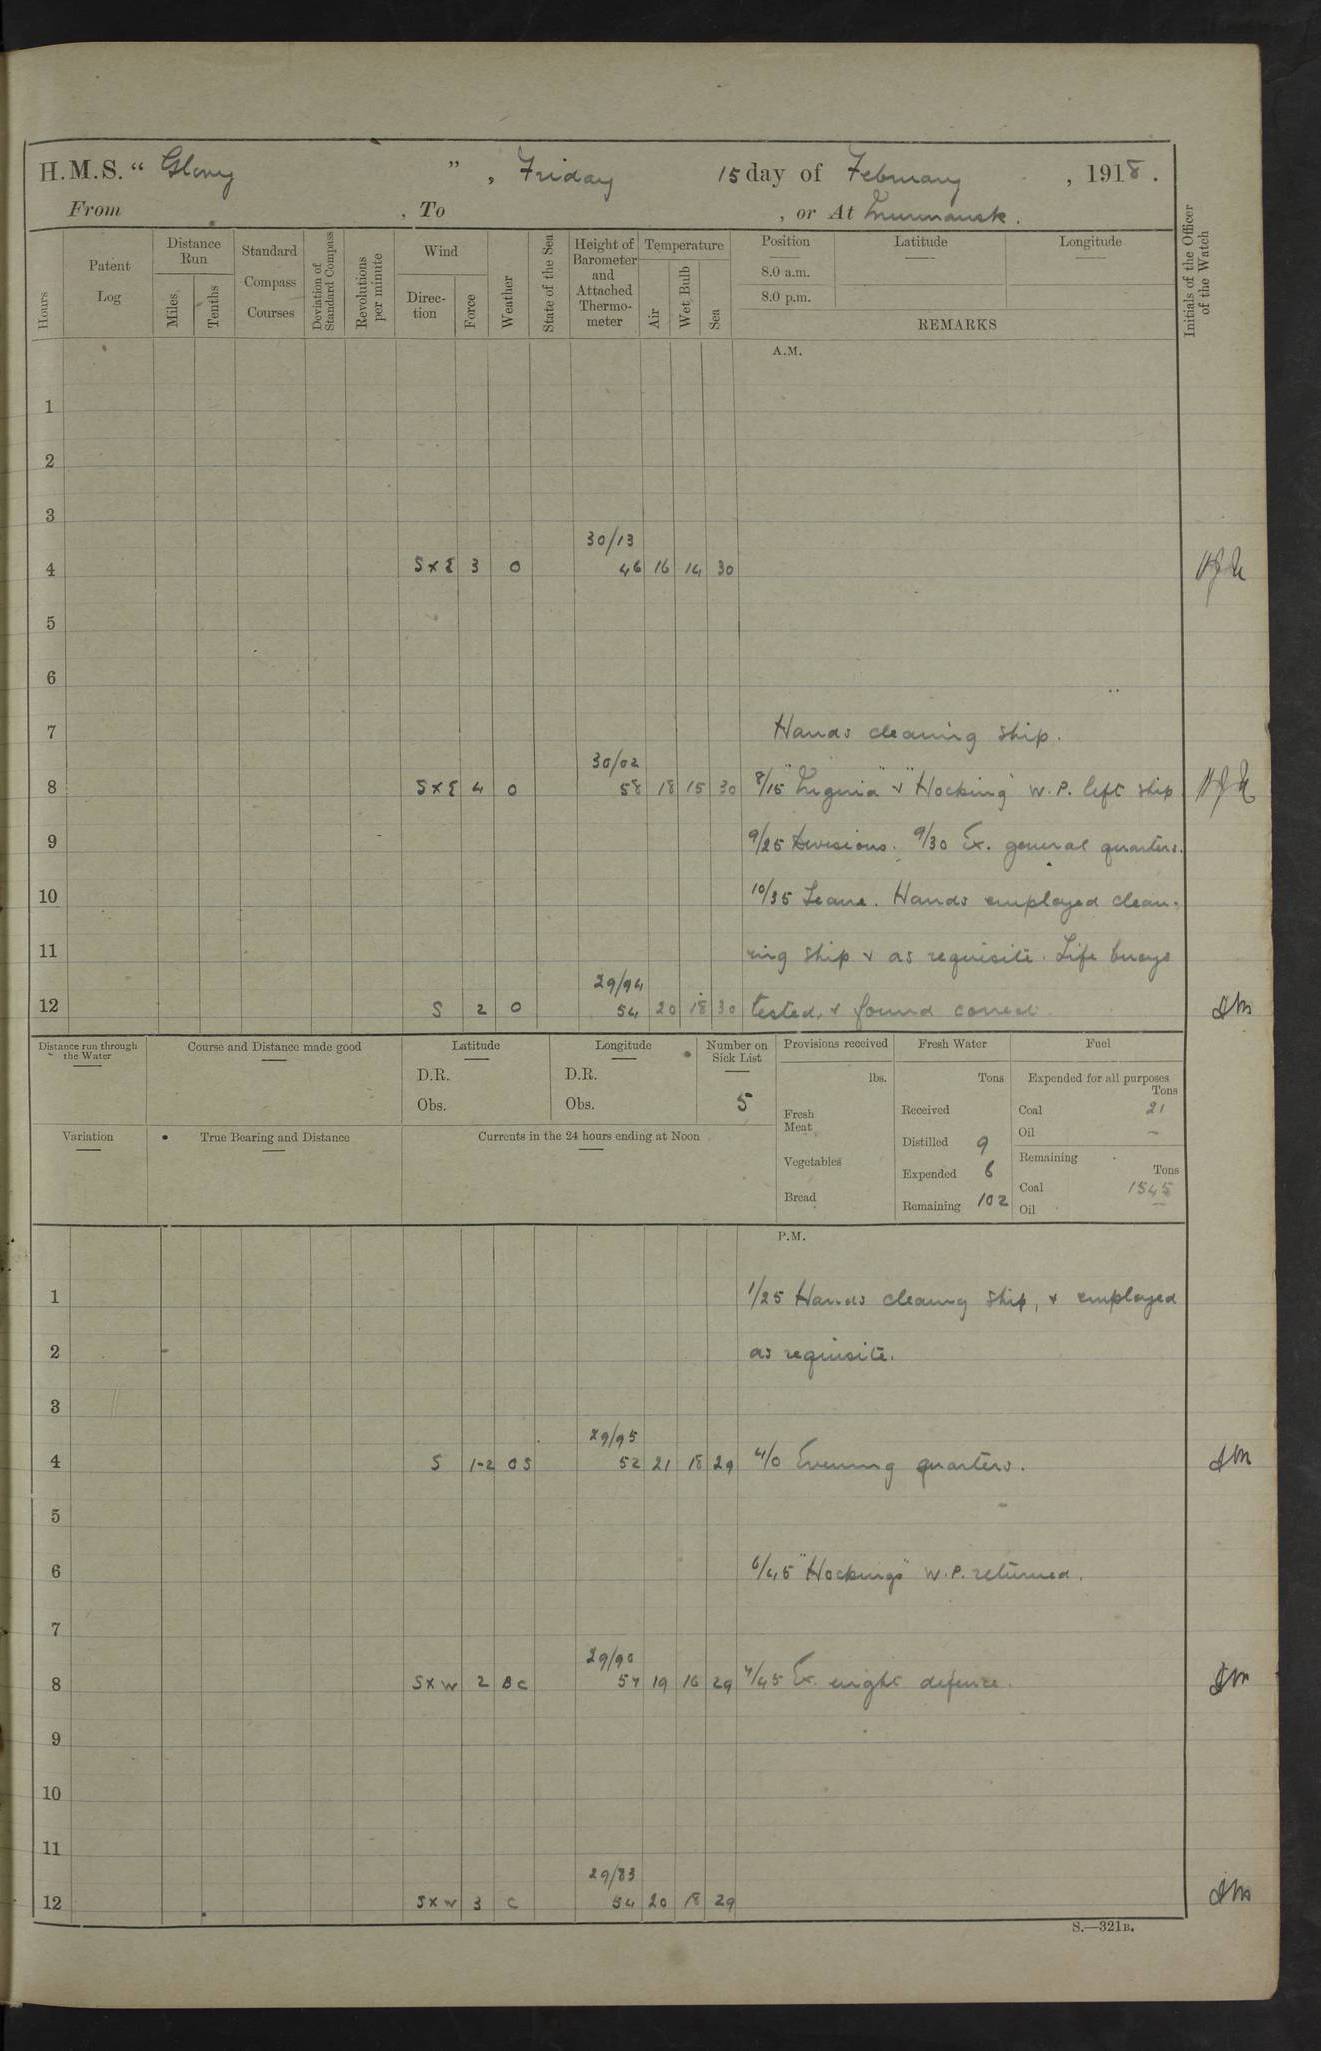 H.M.S. " Glory ", Friday 15 day of February, 1918.
From , To , or At Murmansk.
Hours
Patent Log
Distance Run
Miles
Tenths
Standard Compass Courses
Deviation of Standard Compass
Revolutions per minute
Wind
Direction
Force
Weather
State of the Sea
Height of Barometer and Attached Thermometer
Temperature
Air
Wet Bulb
Sea
Position
8.0 a.m.
8.0 p.m.
Latitude
Longitude
REMARKS
Initials of the Officer of the Watch
A.M.
1
2
3
30/13
4 SxE 3 O 46 16 14 30
5
6
7 Hands cleaning ship.
30/02
8 SxE 4 O 58 18 15 30 8/15 & "Hocking" W.P. left ship
9 9/25 Divisions. 9/30 Ex. general quarters.
10 10/35 Leave. Hands employed clean-
11 ing ship & as requisite. Life buoys
29/94
12 S 2 O 54 20 18 30 tested, & found correct.
Distance run through the Water
Course and Distance made good
Latitude
D.R.
Obs.
Longitude
D.R.
Obs.
Number on Sick List
5
Provisions received
lbs.
Fresh Meat
Vegetables
Bread
Fresh Water
Tons
Received
Distilled 9
Expended 6
Remaining 102
Fuel
Expended for all purposes
Tons
Coal 21
Oil —
Remaining
Tons
Coal 1545
Oil —
Variation
True Bearing and Distance
Currents in the 24 hours ending at Noon
P.M.
1 1/25 Hands cleaning ship, & employed
2 as requisite.
3
29/95
4 S 1-2 OS 52 21 18 29 4/0 Evening quarters.
5
6 6/45 "Hockings" W.P. returned.
7
29/90
8 SxW 2 BC 57 19 16 29 7/45 Ex. night defence.
9
10
11
29/83
12 SxW 3 C 54 20 18 29
S.—321B.